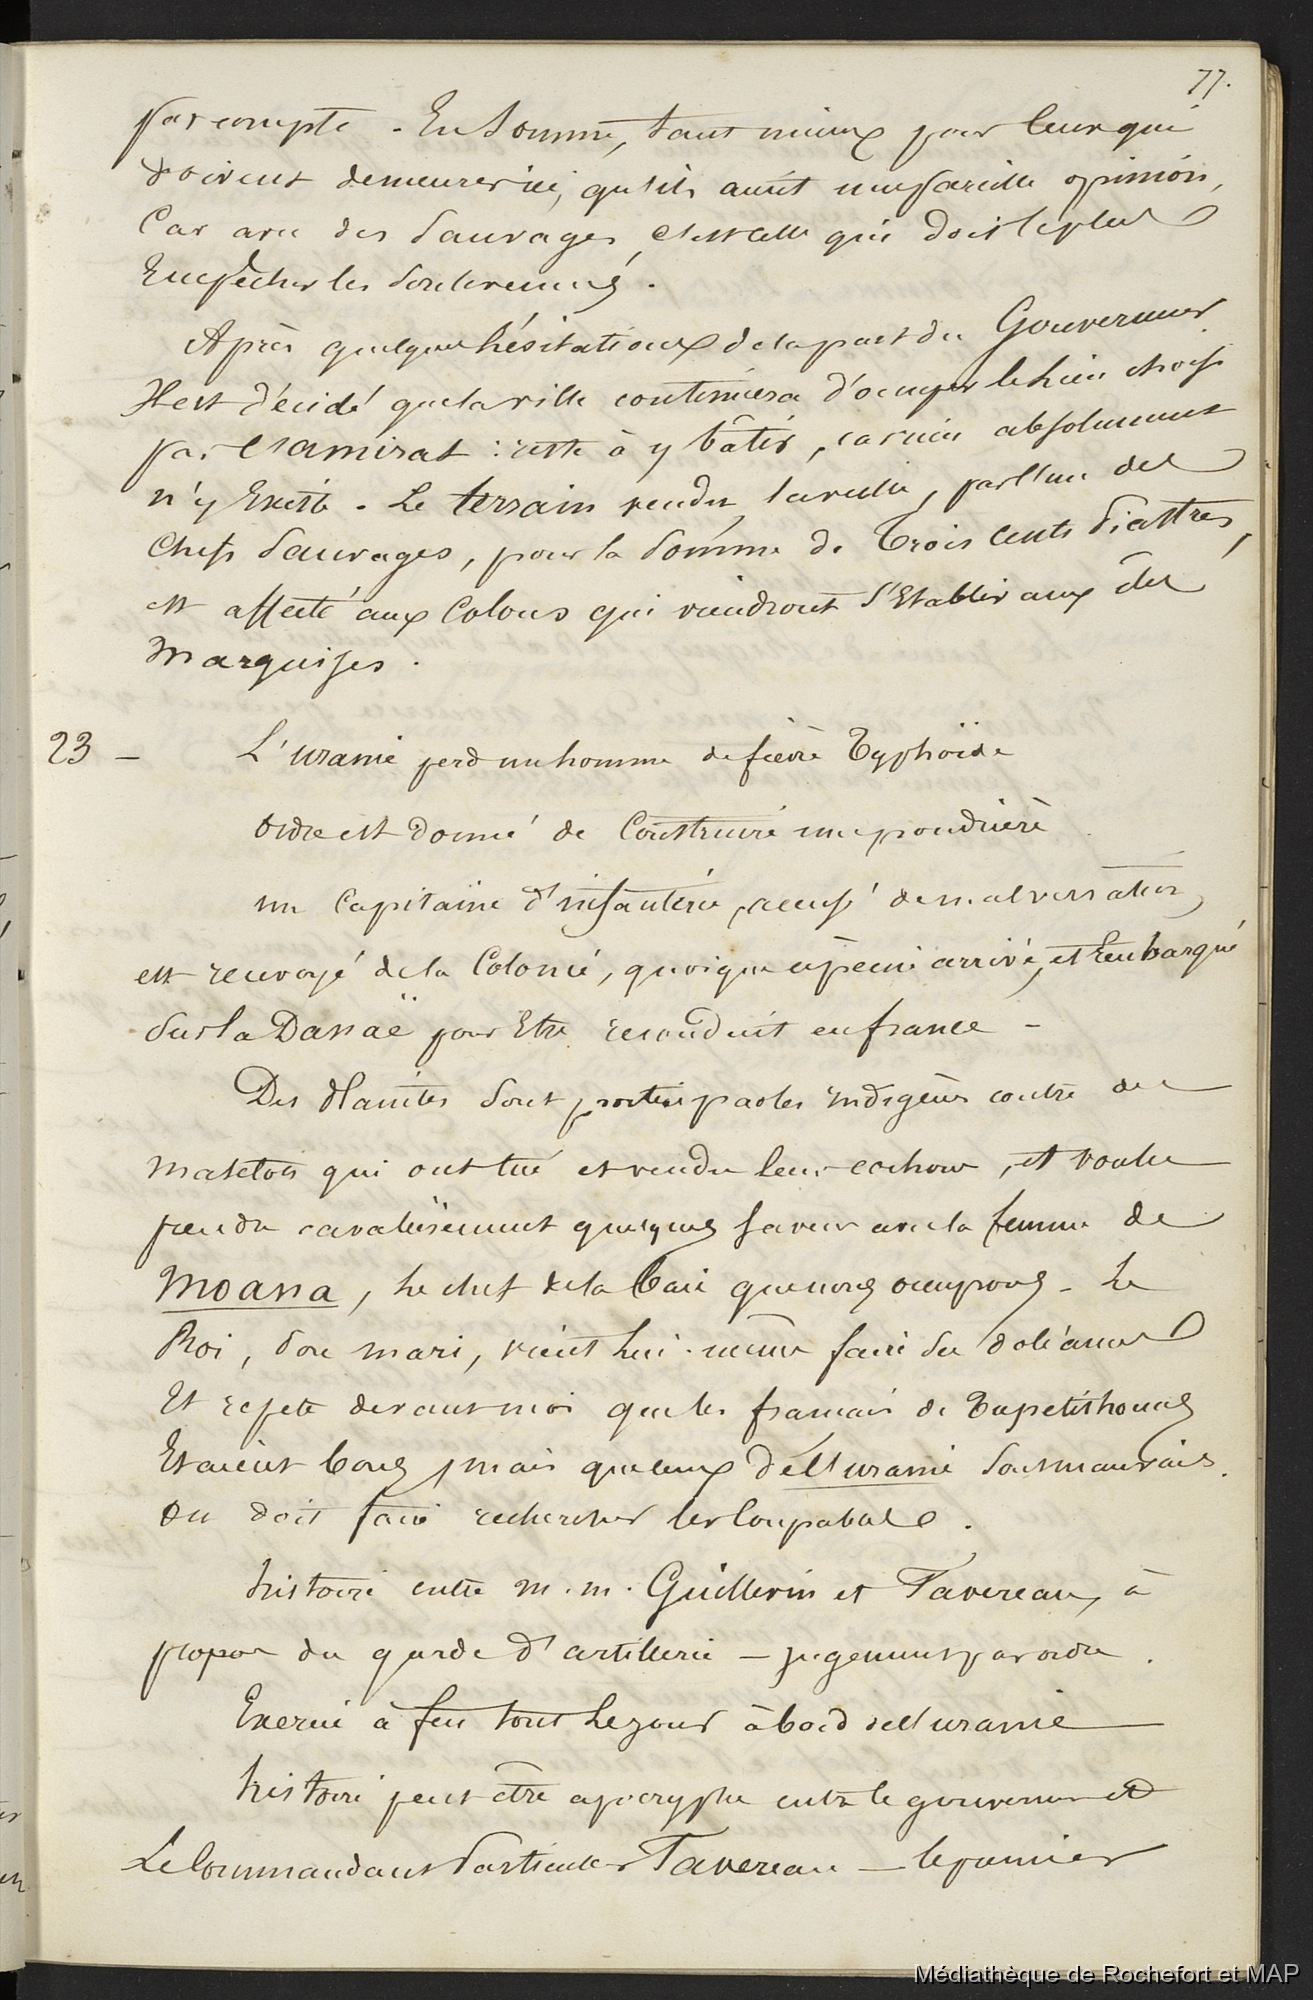 77.
par compte. En somme, tant mieux pour ceux qui
doivent demeurer ici, qu'ils aient une pareille opinion,
Car avec des Sauvages c'est celle qui doit le plus
Empêcher les
Après quelques hésitations de la part du Gouverneur
Il est décidé que la ville continuera d'occuper le lieu choisi
par l'amiral : reste à y bâtir, car rien absolument
n'y Existe. Le terrain vendu, par l'un des
Chefs Sauvages, pour la Somme de Trois Cents Piastres,
est affecté aux Colons qui viendront s'Etablir aux iles
Marquises.
23 — L'uranie perd un homme de fièvre Typhoïde
Ordre est donné de Construire une poudrière
un Capitaine d'infanterie, accusé de malversation,
est renvoyé de la Colonie, quoique à peine arrivé, et Embarqué
Sur la Danaë pour Etre reconduit en france —
Des plaintes Sont portées par les indigènes contre des
matelots qui ont tué et vendu leurs cochons, et voulu
prendre cavalièrement quelques faveurs avec la femme de
Moana, le chef de la baie que nous occupons - Le
Roi, Son mari, vient lui-même faire Ses doléances
Et repete devant moi que les francais de Dupetithouars
Etaient bons, mais que ceux de l'uranie Sont mauvais.
On doit faire rechercher les Coupables.
histoire entre m.m. Guillevin et Favereau, à
propos du garde d'artillerie — jugement par ordre.
Exercice à feu tout le jour à bord de l'uranie —
histoire peut être apocryphe entre le gouverneur et
Le Commandant Particulier Favereau — le premier
Médiathèque de Rochefort et MAP